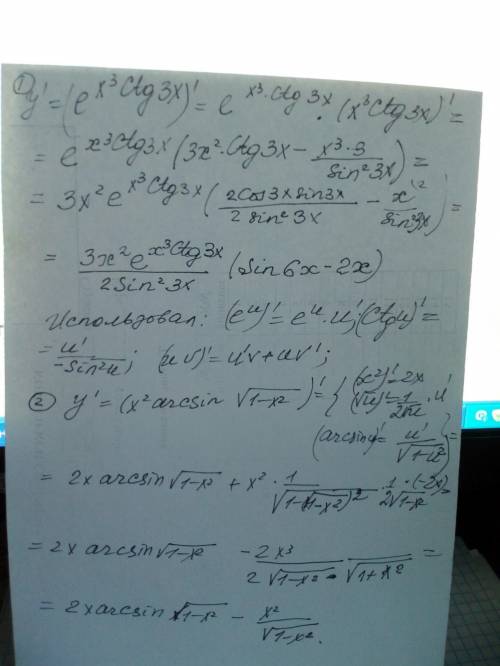 ① y' = (e^{x^3 Ctg 3x})' = e^{x^3·Ctg 3x} · (x^3 Ctg 3x)' =
= e^{x^3 Ctg 3x} (3x^2·Ctg 3x − \frac{x^3·3}{Sin^2 3x}) =
= 3x^2 e^{x^3 Ctg 3x} (\frac{2Cos 3x sin 3x}{2 sin^2 3x} − \frac{x^{\2}}{sin^2 3x}) =
= \frac{3x^2 e^{x^3 Ctg 3x}}{2 Sin^2 3x} (Sin 6x − 2x)
Использовал: (e^u)' = e^u·u'; (Ctg u)' =
= \frac{u'}{-Sin^2 u}; (uv)' = u'v + uv';
② y' = (x^2 arcsin \sqrt{1-x^2})' = { (x^2)' = 2x
(\sqrt{u})' = \frac{1}{2\sqrt{u}}·u'
(arcsin u)' = \frac{u'}{\sqrt{1-u^2}} } =
= 2x arcsin \sqrt{1-x^2} + x^2 · \frac{1}{\sqrt{1-(\sqrt{1-x^2})^2}} · \frac{1·(-2x)}{2\sqrt{1-x^2}} =
= 2x arcsin \sqrt{1-x^2} \frac{-2x^3}{2\sqrt{1-x^2} · \sqrt{1+x^2}} =
= 2x arcsin \sqrt{1-x^2} − \frac{x^2}{\sqrt{1-x^2}}.